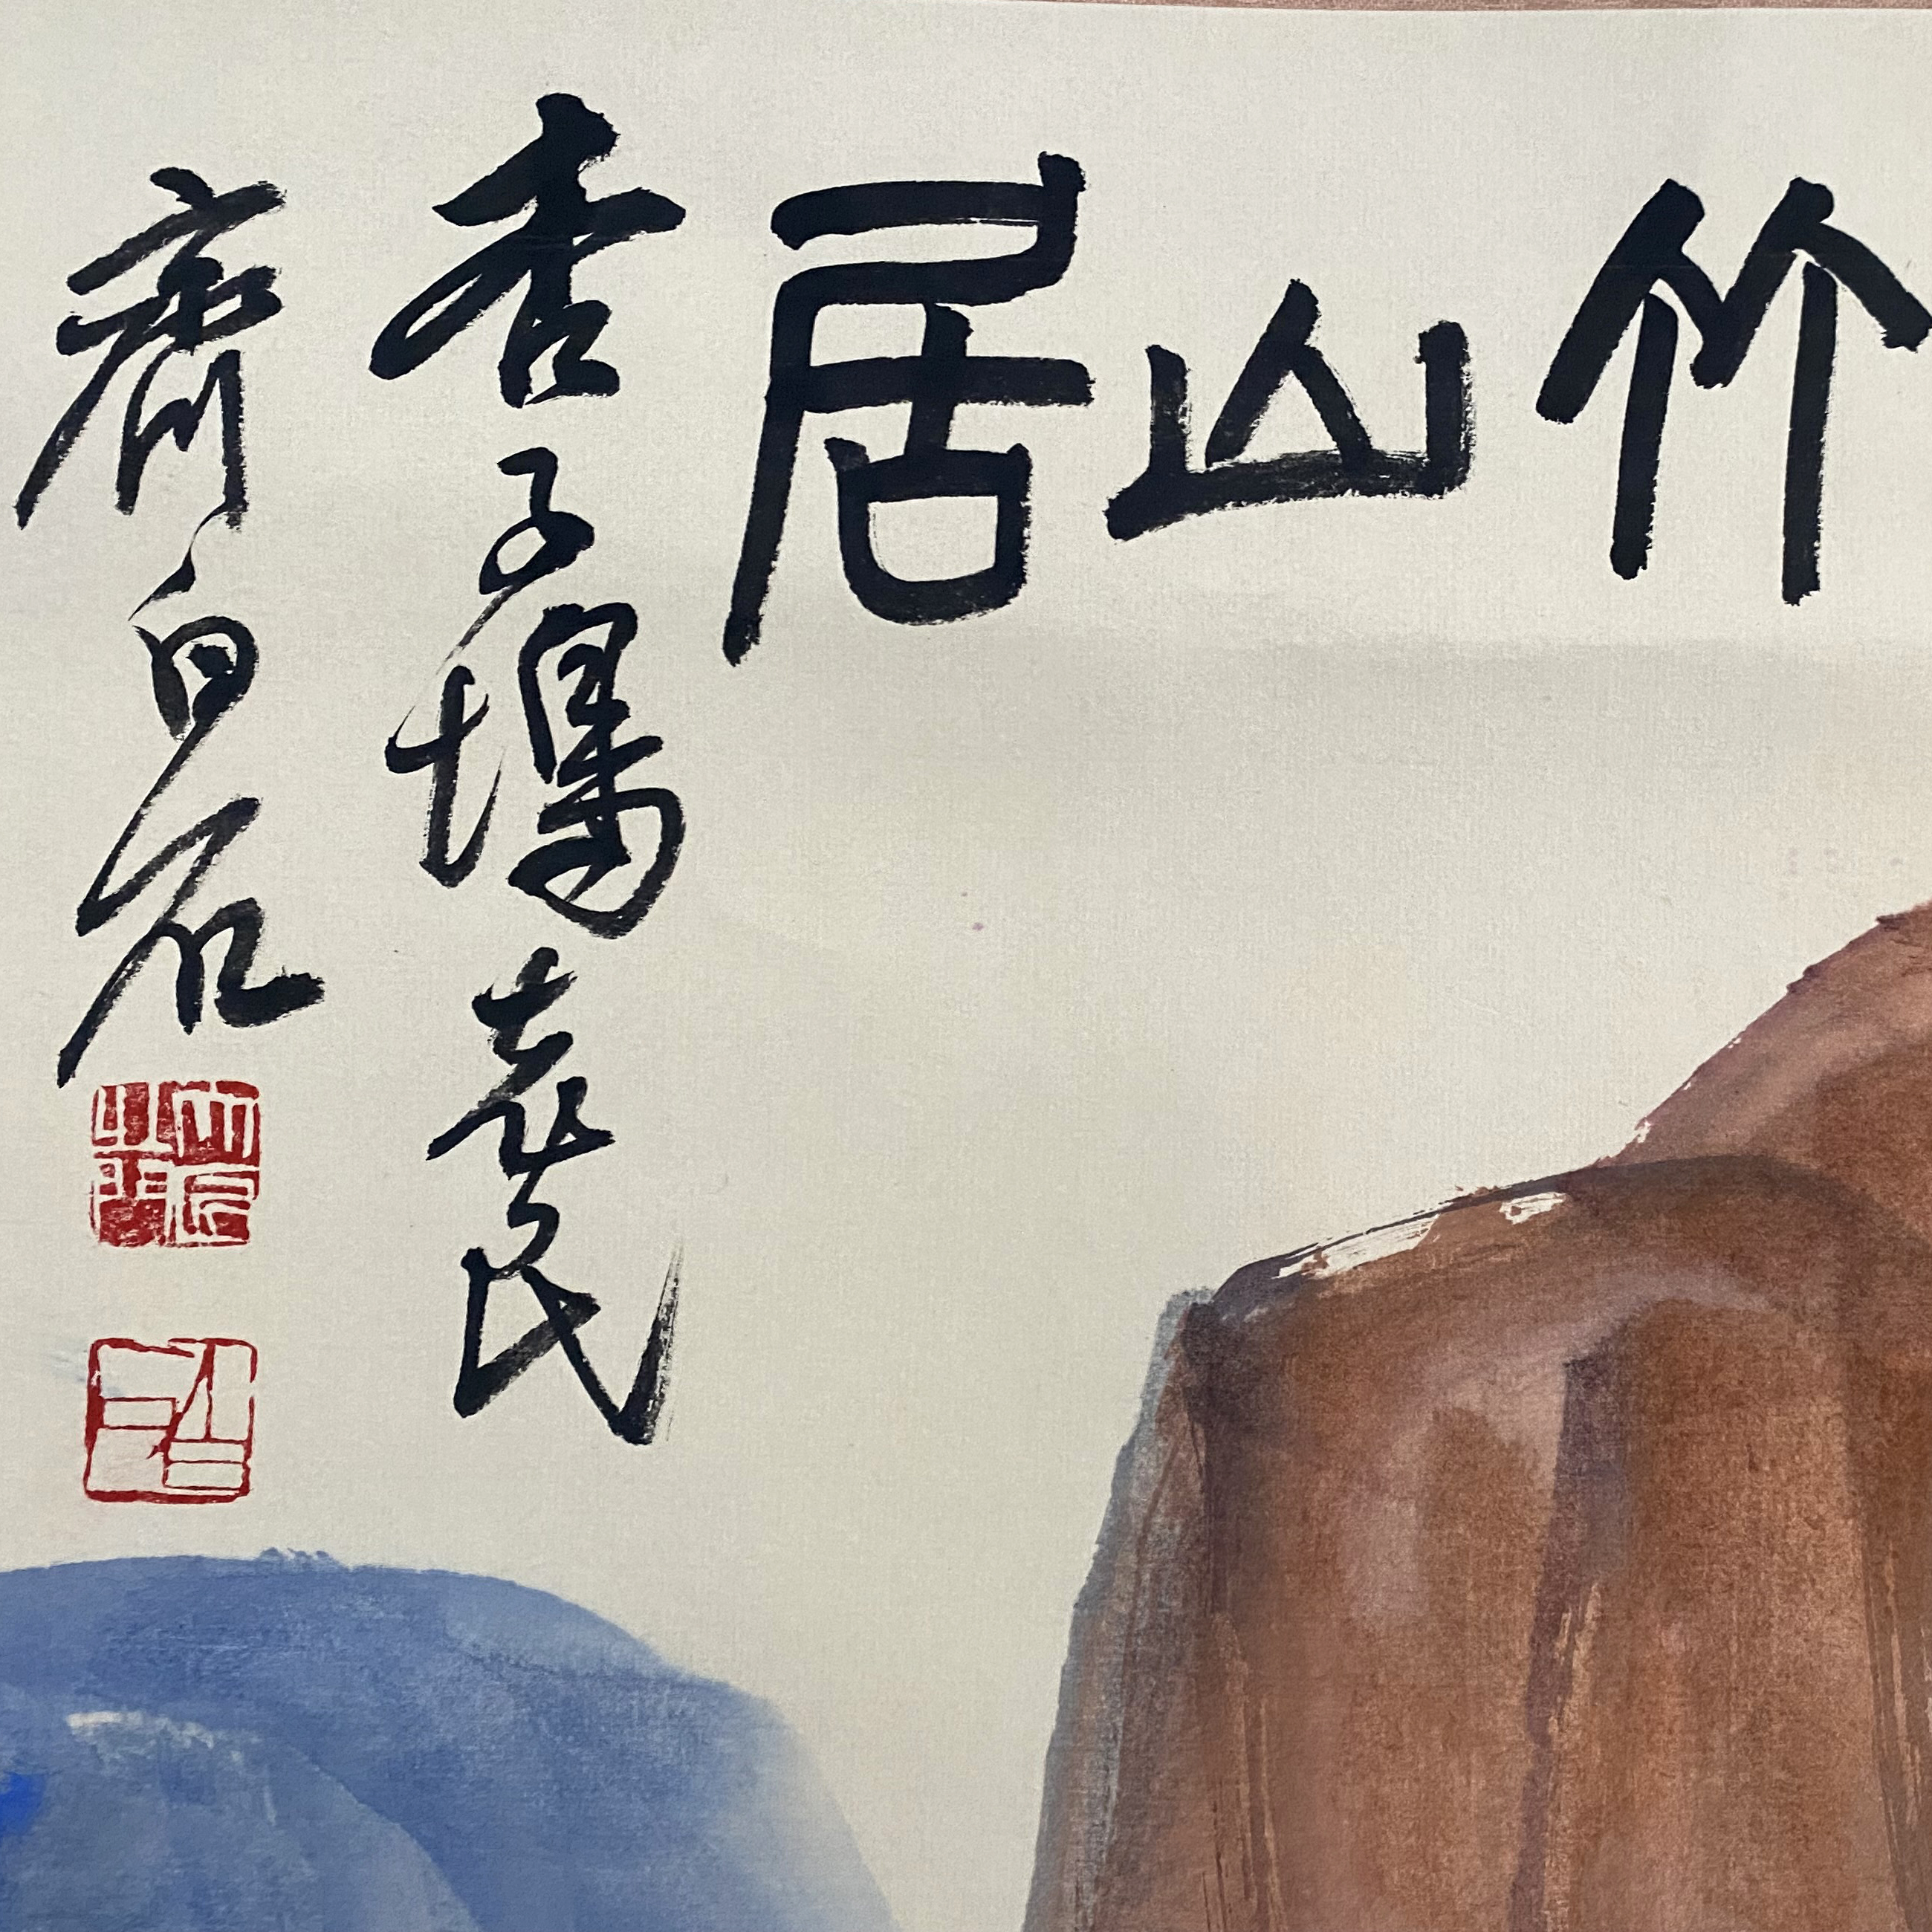 竹山居
杏子塢老民
齊白石